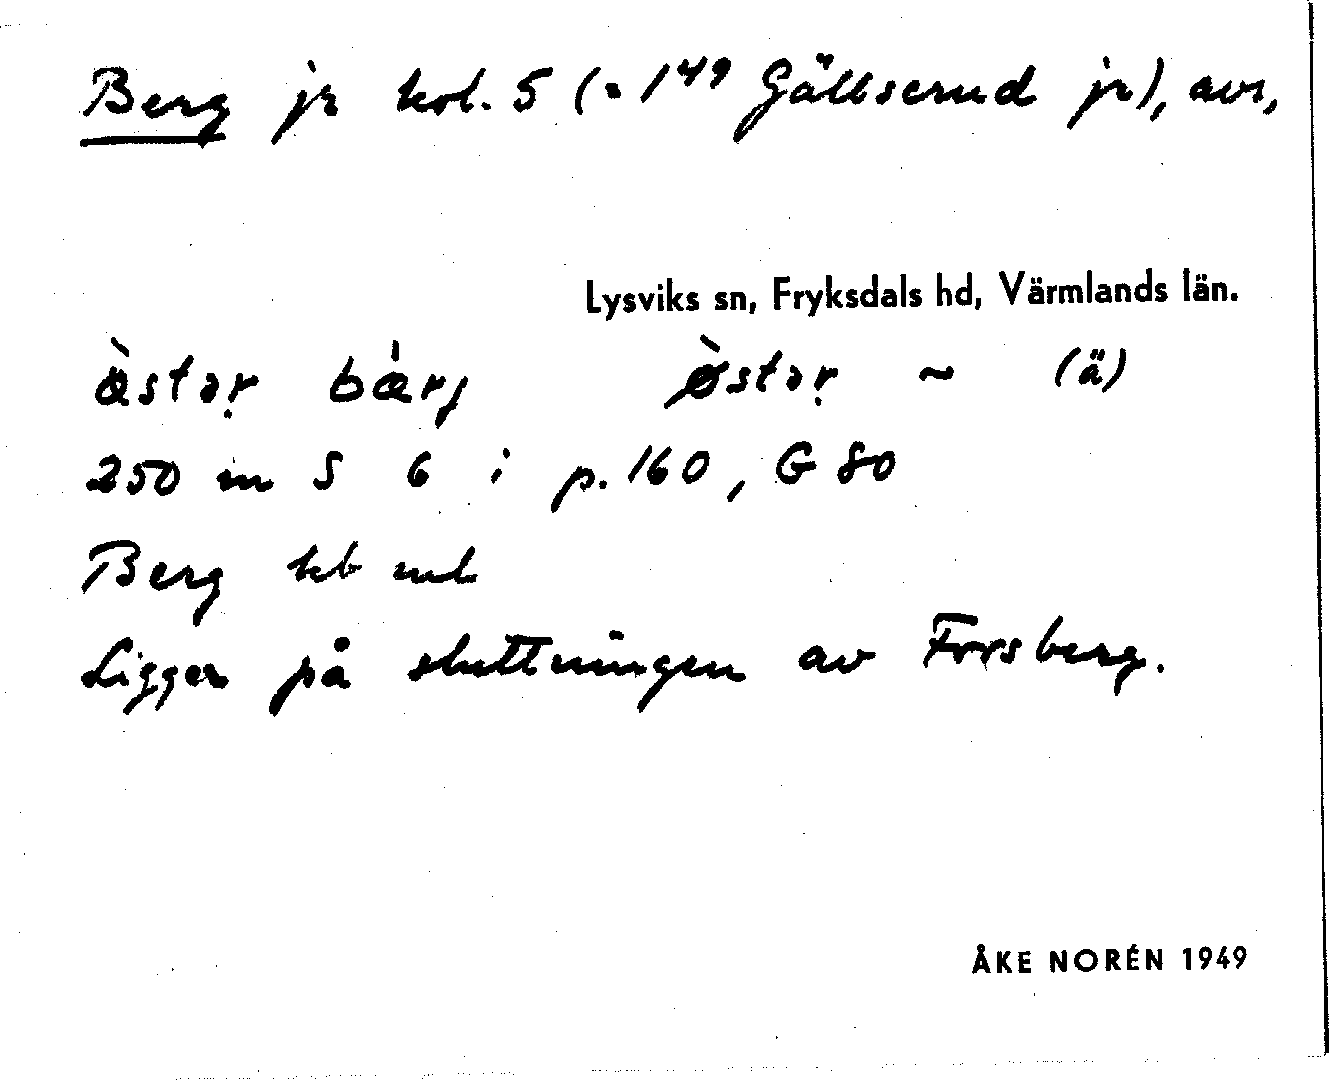 Berg jr kol. 5 (= 1⁴⁹ Gällserud jr), avs,
Lysviks sn, Fryksdals hd, Värmlands län.
æ̀stər bǽrj ø̀stər ~ (ä)
250 m S 6 i p. 160, G 80
Berg kb ml
Ligger på sluttningen av Forsberg.
ÅKE NORÉN 1949